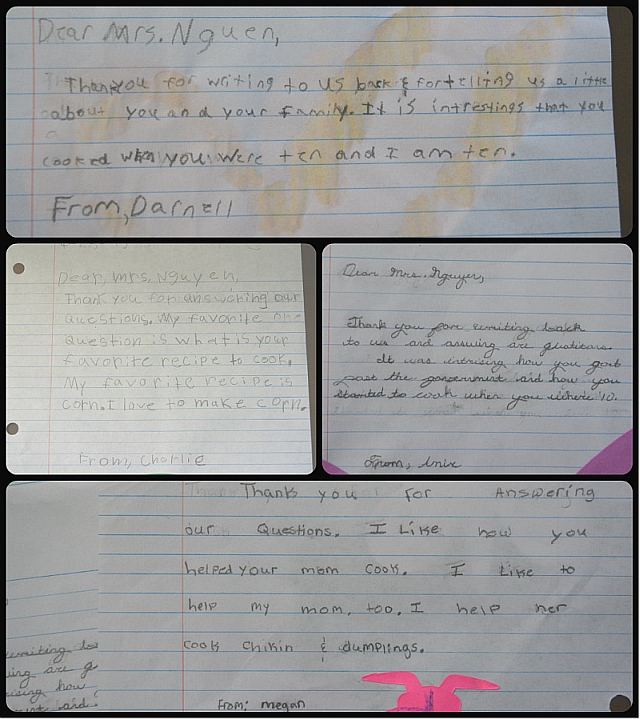 Dear Mrs. Nguen,
Thankyou for writing to us back & for telling us a little
about you and your family. It is intrestings that you
cooked when you were ten and I am ten.
From, Darnell
Dear, mrs. Nguyen,
Thank you for answering our
Questions. My favorite one
Question is what is your
favorite recipe to cook.
My favorite recipe is
corn. I love to make corn.
From, Charlie
Dear Mrs. Nguyen,
Thank you for writing back
to us and assuing are questions.
It was intrising how you gout
past the government and how you
started to cook when you where 10.
From,
Thank you for Answering
our Questions. I Like how you
helped your mom cook. I Like to
help my mom, too. I help her
cook chikin & dumplings.
From: megan
writing
are
how